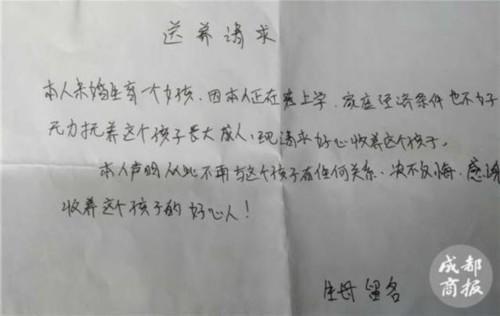 送养请求
本人未婚生育一个女孩，因本人正在上学，家庭经济条件也不好
无力抚养这个孩子长大成人，现请求好心收养这个孩子。
本人声明从此不再与这个孩子有任何关系，决不反悔，感谢
收养这个孩子的好心人！
生母留名
成都
商报